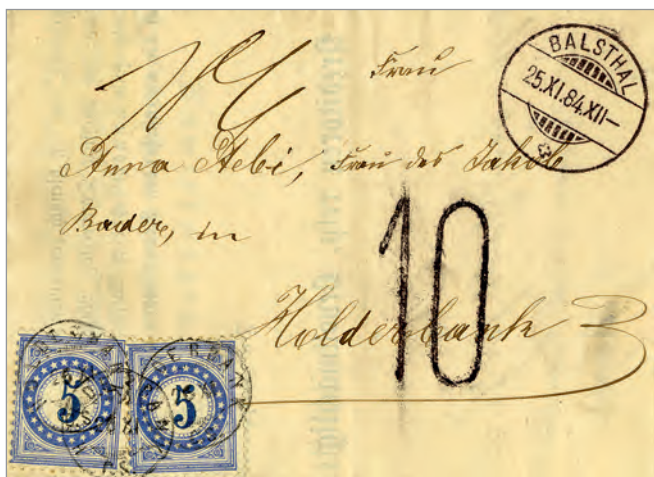 Frau
BALSTHAL
25.XI.84.XII—
Anna Aebi, Frau des Jakob
Bader, in
10
Holderbank
5
5